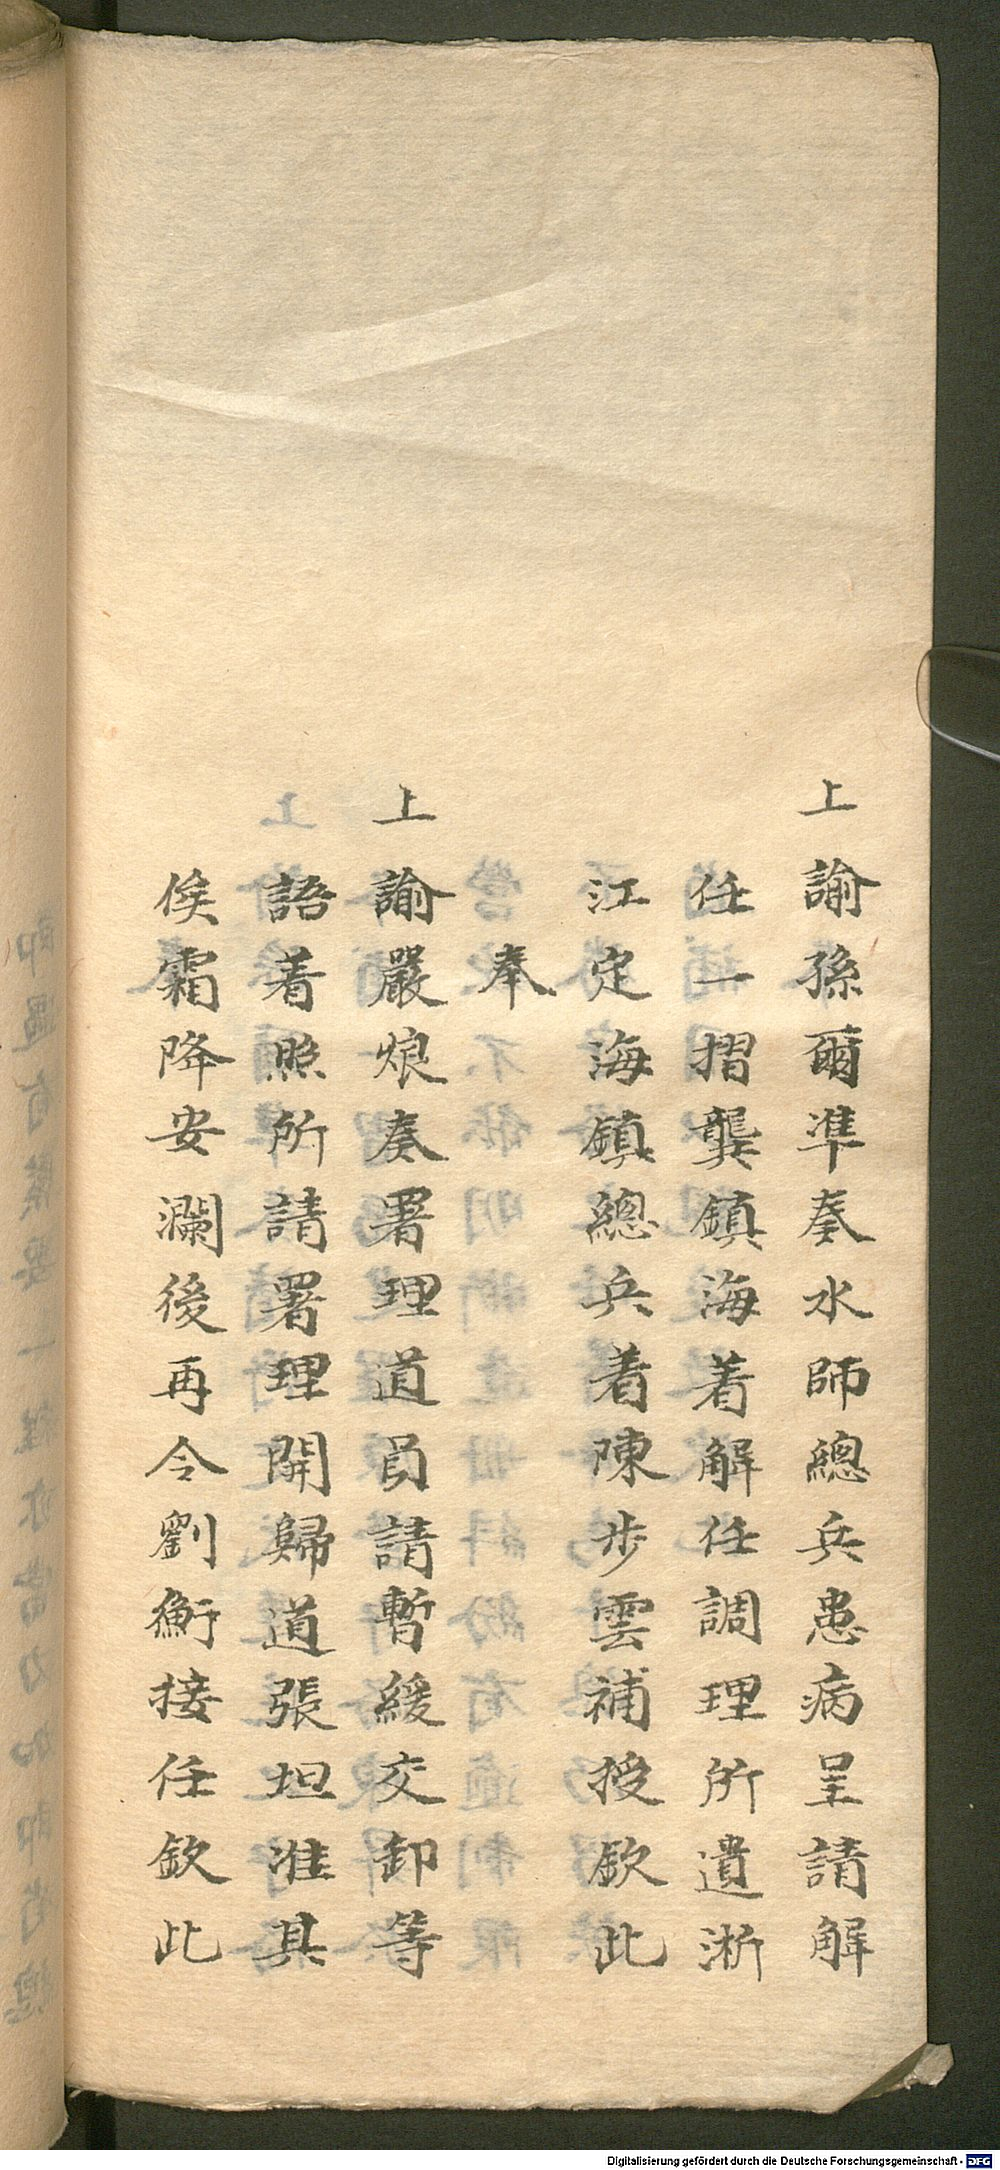 上諭孫爾準奏水師總兵患病呈請解
任一摺龔鎮海着解任調理所遺浙
江定海鎮總兵着陳步雲補授欽此
奉
上諭嚴烺奏署理道員請暫緩交卸等
語着照所請署理開歸道張坦准其
俟霜降安瀾後再令劉衡接任欽此
Digitalisierung gefördert durch die Deutsche Forschungsgemeinschaft - DFG